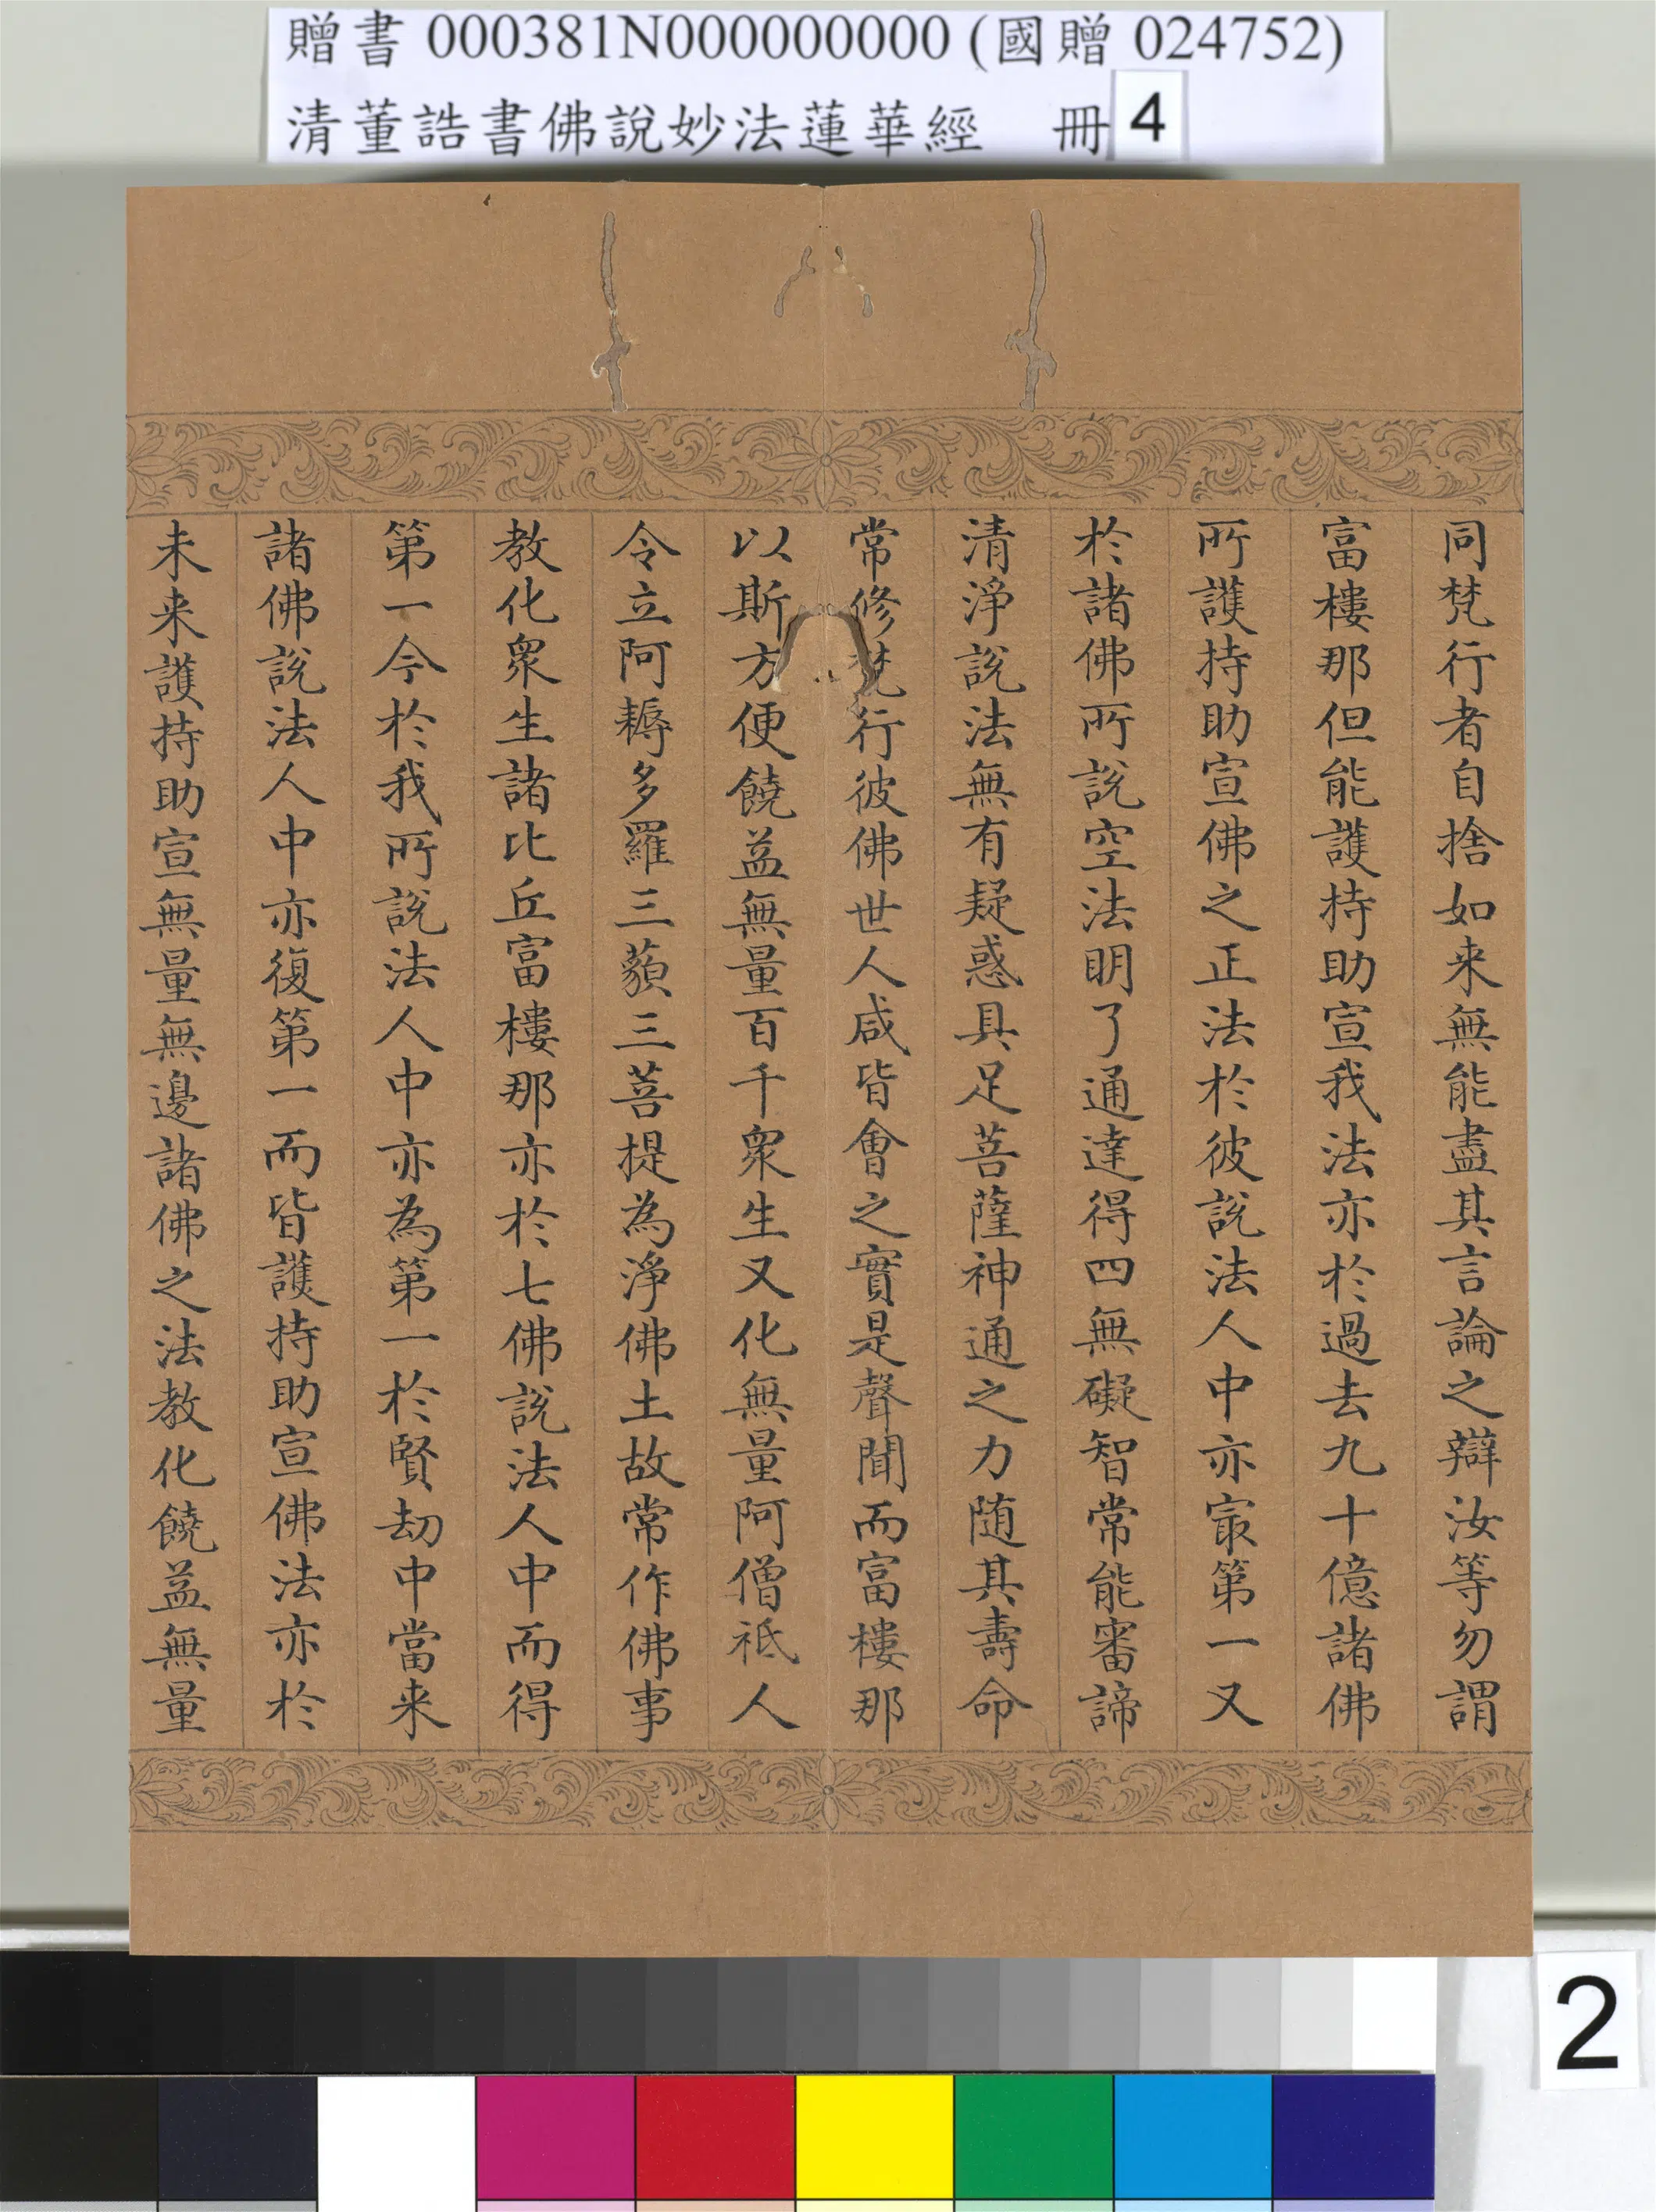 贈書 000381N000000000 (國贈 024752)
清董誥書佛說妙法蓮華經 冊 4
同梵行者自捨如来無能盡其言論之辯汝等勿謂
富樓那但能護持助宣我法亦於過去九十億諸佛
所護持助宣佛之正法於彼說法人中亦冣第一又
於諸佛所說空法明了通達得四無礙智常能審諦
清淨說法無有疑惑具足菩薩神通之力随其壽命
常修梵行彼佛世人咸皆會之實是聲聞而富樓那
以斯方便饒益無量百千衆生又化無量阿僧祇人
令立阿耨多羅三藐三菩提為淨佛土故常作佛事
教化衆生諸比丘富樓那亦於七佛說法人中而得
第一今於我所說法人中亦為第一於賢劫中當来
諸佛說法人中亦復第一而皆護持助宣佛法亦於
未来護持助宣無量無邊諸佛之法教化饒益無量
2